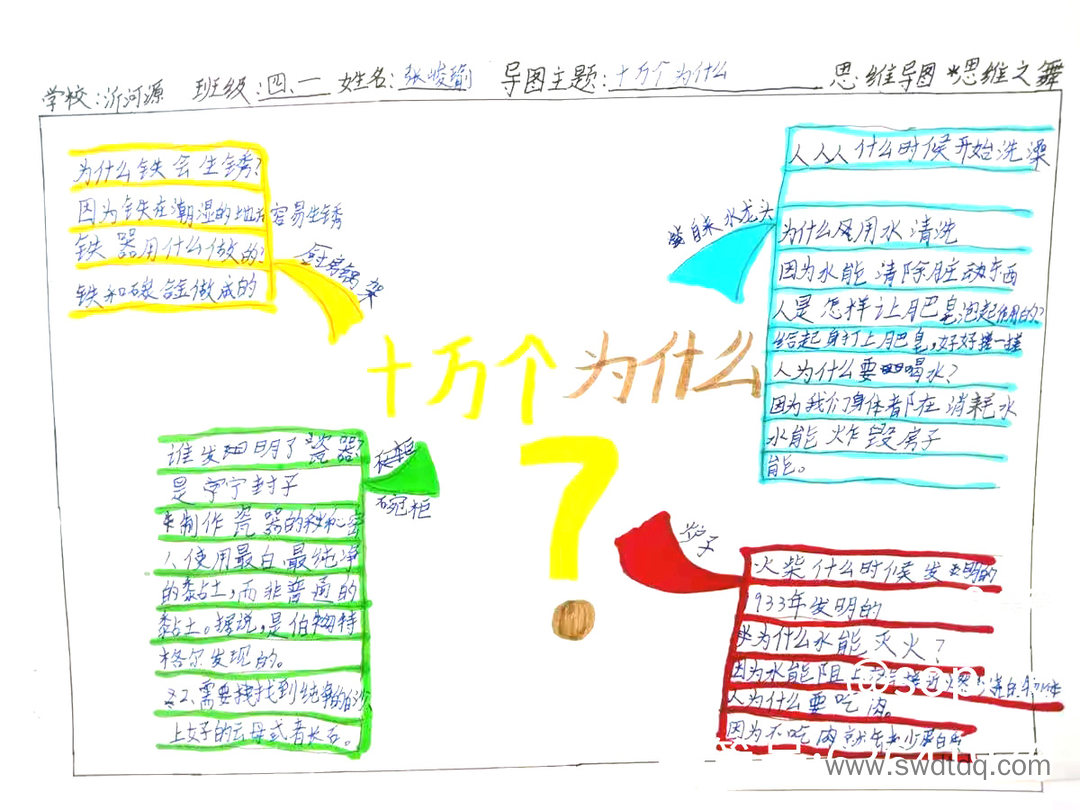 学校:沂河源 班级:四、一 姓名:张峻瑜 导图主题:十万个为什么 思维导图*思维之舞
为什么铁会生锈?
因为铁在潮湿的地方容易生锈
铁器用什么做的?
铁和碳合金做成的
厨房锅架
十万个为什么
?
自来水龙头
人人人什么时候开始洗澡
为什么要用水清洗
因为水能清除脏动东西
人是怎样让肥皂泡起作用的?
给起身打上肥皂,好好搓一搓
人为什么要喝水?
因为我们身体都在消耗水
水能炸毁房子
能。
碗柜
谁发明了瓷器?
是字宁封子
制作瓷器的秘密
1、使用最白最纯净
的黏土,而非普通的
黏土。据说,是伯特
格尔发现的。
2、需要找到纯净的
上好的云母或者长石。
炉子
火柴什么时候发明的
1933年发明的
为什么水能灭火?
因为水能阻止
人为什么要吃肉。
因为不吃肉就会缺少蛋白质
@sdjp
www.swdtdq.com